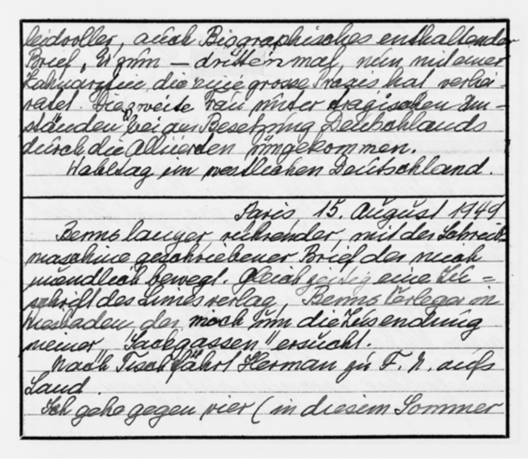 leidvoller, auch Biographisches enthaltender
Brief. Er zum — dritten mal, nun mit einer
Zahnärztin, die eine grosse Praxis hat verhei-
ratet. Die zweite Frau unter tragischen Um-
ständen bei der Besetzung Deutschlands
durch die Alliierten umgekommen.
Wahltag im westlichen Deutschland.
Paris, 15. August 1949
Benns langer rührender mit der Schreib
maschine geschriebener Brief der mich
unendlich bewegt. Gleichzeitig eine Zu=
schrift des Limesverlag, Benns Verleger in
Wiesbaden, der mich um die Zusendung
meiner "Sackgassen" ersucht.
Nach Tisch fährt Herman zu F. N. aufs
Land.
Ich gehe gegen vier (in diesem Sommer